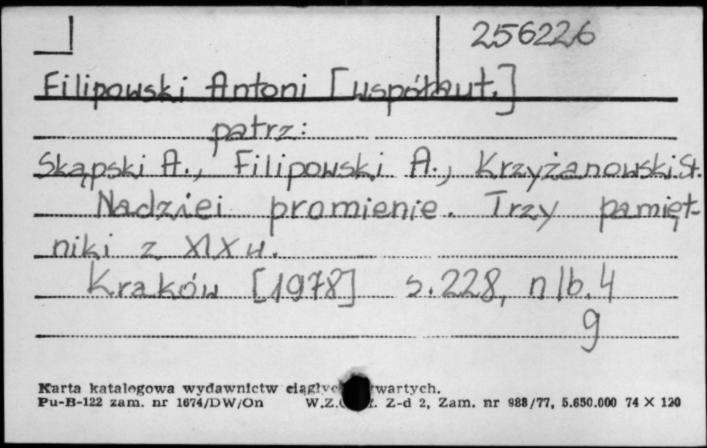 256226
Filipowski Antoni [współaut.]
patrz:
Skąpski A., Filipowski A., Krzyżanowski St.
Nadziei promienie. Trzy pamięt-
niki z XIX w.
Kraków [1978] s. 228, nlb. 4
9
Karta katalogowa wydawnictw
Pu-B-122 zam. nr 1674/DW/On W.Z. Z-d 2, Zam. nr 988/77, 5.650.000 74 X 120